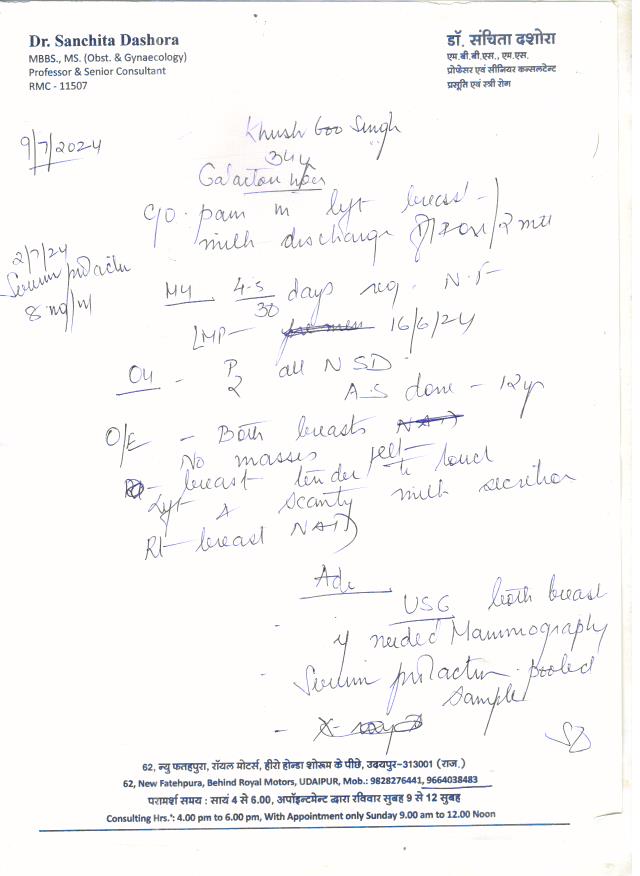 Dr. Sanchita Dashora
MBBS., MS. (Obst. & Gynaecology)
Professor & Senior Consultant
RMC - 11507
डॉ. संचिता दशोरा
एम.बी.बी.एस., एम.एस.
प्रोफेसर एवं सीनियर कन्सलटेन्ट
प्रसूति एवं स्त्री रोग
9/7/2024
Khush Singh
34y
C/O pain in left breast
milk discharge
2/7/24
Serum prolactin
8 ng/ml
MH 4-5/30 days reg. N.F
LMP - 16/6/24
OH - P2 all NSD
A.S done - 12yr
O/E - Both breasts NAD
No masses felt
breast tender to touch
Left scanty milk secretion
Rt breast NAD
Adv
- USG both breast
if needed Mammography
- Serum prolactin pooled
sample
- X-ray
62, न्यु फतहपुरा, रॉयल मोटर्स, हीरो होन्डा शोरूम के पीछे, उदयपुर-313001 (राज.)
62, New Fatehpura, Behind Royal Motors, UDAIPUR, Mob.: 9828276441, 9664038483
परामर्श समय : सायं 4 से 6.00, अपॉइन्टमेन्ट द्वारा रविवार सुबह 9 से 12 सुबह
Consulting Hrs.: 4.00 pm to 6.00 pm, With Appointment only Sunday 9.00 am to 12.00 Noon